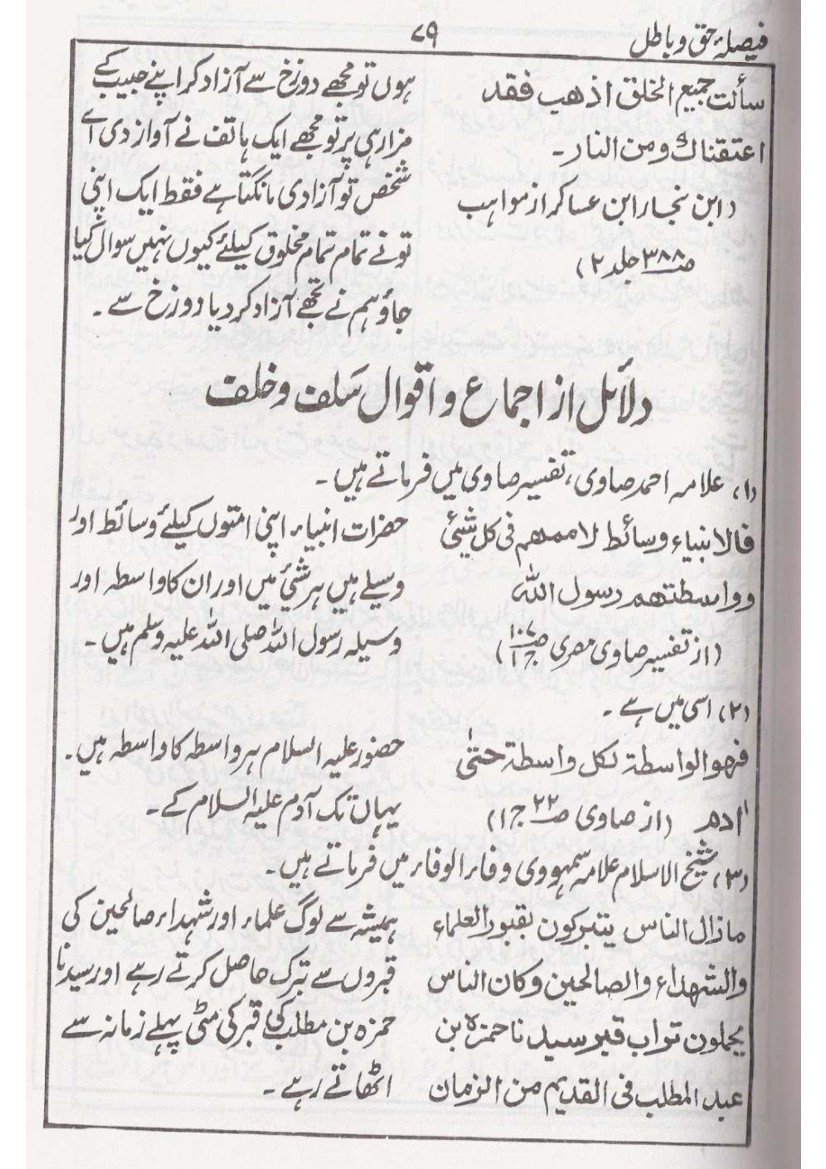 فیصلۂ حق و باطل
۷۹
سألت جمیع الخلق اذھب فقد
اعتقناك ومن النار۔
(ابن نجار ابن عساکر از مواہب
صـ۳۸۸ جلد ۲)
ہوں تو مجھے دوزخ سے آزاد کر اپنے حبیب کے
مزار ہی پر تو مجھے ایک ہاتف نے آواز دی اے
شخص تو آزادی مانگتا ہے فقط ایک اپنی
تونے تمام تمام مخلوق کیلئے کیوں نہیں سوال کیا
جاؤ ہم نے تجھے آزاد کر دیا دوزخ سے۔
دلائل از اجماع و اقوال سَلف و خلف
(۱) علامہ احمد صاوی، تفسیر صاوی میں فرماتے ہیں۔
فالانبیاء وسائط لاممھم فی کل شیئ
وواسطتھم رسول اللہ
(از تفسیر صاوی مصری صـ۱۰۷ ج۱)
حضرات انبیاء اپنی امتوں کیلئے وسائط اور
وسیلے ہیں ہر شیئ میں اور ان کا واسطہ اور
وسیلہ رسول اللہ صلی اللہ علیہ وسلم ہیں۔
(۲) اسی میں ہے۔
فھو الواسطۃ لکل واسطۃ حتیٰ
اٰدم (از صاوی صـ۲۲ ج۱)
حضور علیہ السلام ہر واسطہ کا واسطہ ہیں۔
یہاں تک آدم علیہ السلام کے۔
(۳) شیخ الاسلام علامہ سمہووی وفاء الوفاء میں فرماتے ہیں۔
مازال الناس یتبرکون بقبور العلماء
والشھداء والصالحین وکان الناس
یحملون تراب قبر سیدنا حمزہ بن
عبد المطلب فی القدیم من الزمان
ہمیشہ سے لوگ علماء اور شہداء صالحین کی
قبروں سے تبرک حاصل کرتے رہے اور سیدنا
حمزہ بن مطلب کی قبر کی مٹی پہلے زمانہ سے
اٹھاتے رہے۔